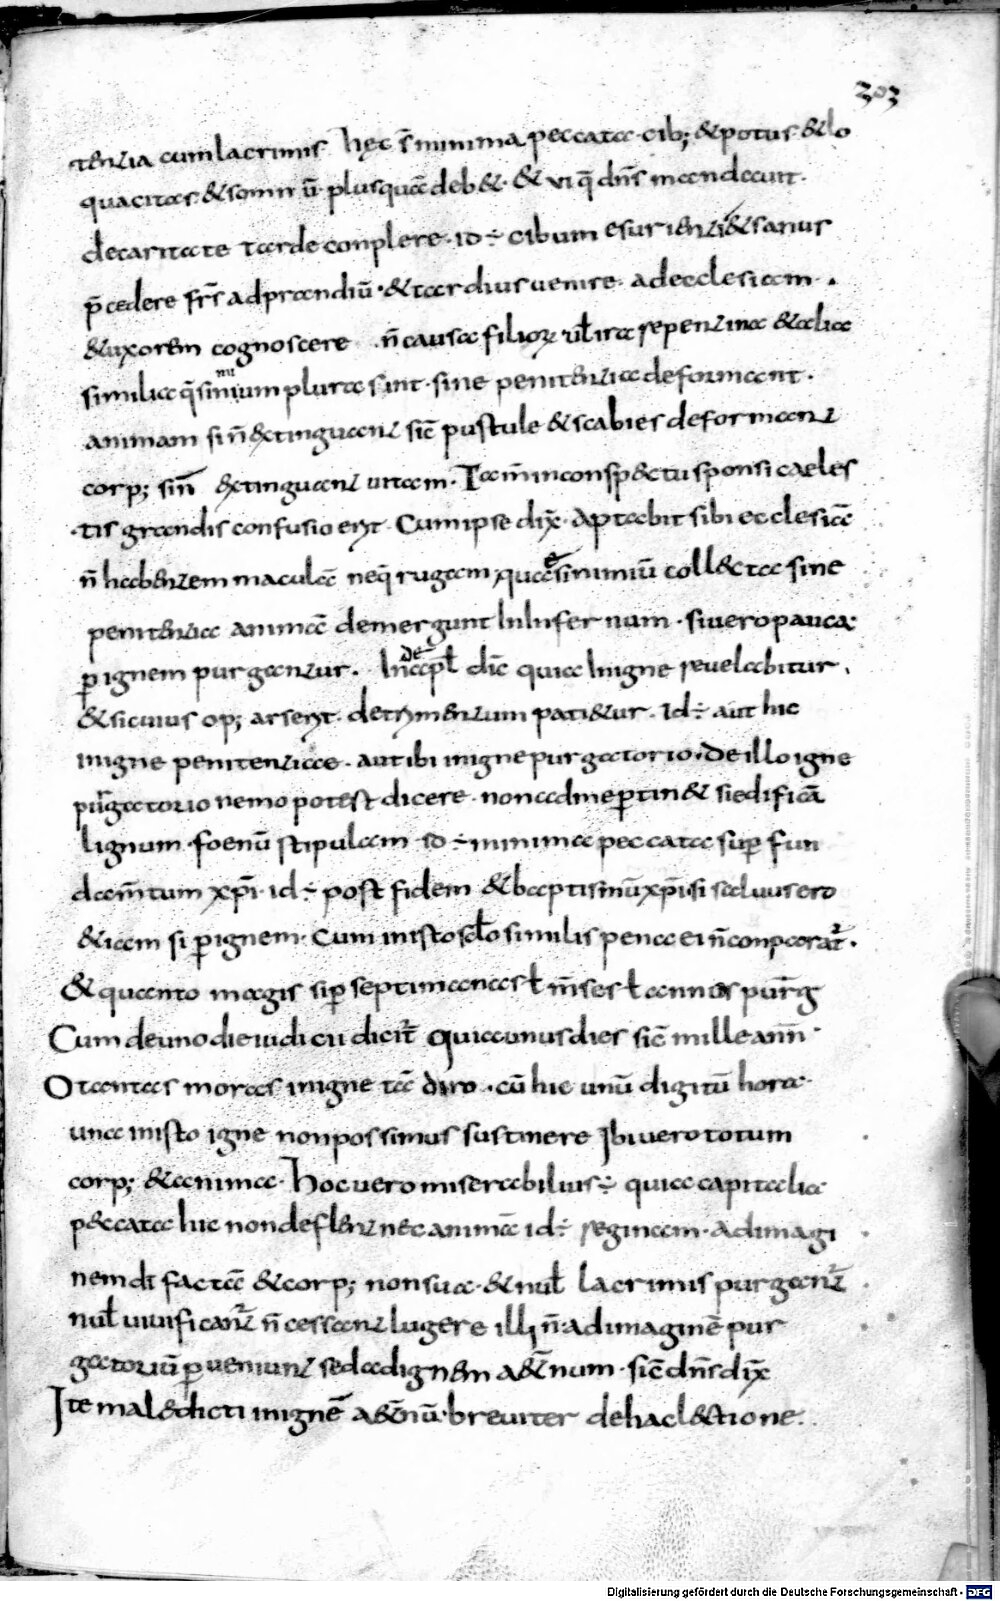 303
tentia cum lacrimis hęc s̄ minima peccata· cib; & potus· & lo
quacitas· & somn ū· plusquā deb&· & vi q̄ dn̄s in com docuit.
de caritate tarde conplere· id ÷ cibum esurienti & sanus
p̄cedere fr̄s ad prandiū· & tardius venire· ad ecclesiam·.
& uxorem cognoscere n̄ causa filior; uł ira repentina & alia
similia q̄ si nimium plura sint· sine penitentia deformant.
animam si n̄ extinguant sic̄ pustule & scabies deformant
corp; si n̄ extinguant uitam· Iam̄ in conspectu sponsi caeles
tis grandis confusio erit· Cum ipse dix̄· Aptabit sibi ecclesiā
n̄ habentem maculā neq̄ rugam, quae si nimiū collecta sine
penitentia animā demergunt In Infernum· si uero pauca;
ꝑ ignem purgantur. Inde apłs dic̄ quia In igne reuelabitur.
& si cuius op; arserit· detrimentum patietur. Id ÷ aut hic
in igne penitentiae· aut ibi in igne purgatorio· De illo igne
purgatorio nemo potest dicere· non ad me ꝑtin& si edificā
lignum· foenū stipulam· id ÷ minima peccata sup̄ fun
dam̄tum xp̄i· id ÷ post fidem & baptismū xp̄i si saluus ero
& iam si ꝑ ignem· Cum in isto sc̄lo similis pena ei n̄ conparat̄.
& quanto magis sup̄ septimanas ł m̄ses ł annos purḡ
Cum de uno die iudicii dicit̄ quia unus dies sic̄ mille ann̄·
O tantas moras in igne tā diro· cū hic unū digitū hora·
una in isto igne non possimus sustinere Ibi uero totum
corp; & anima· Hoc uero miserabilius ÷ quia capitalia
peccata hic non deflent nec animā id ÷ reginam· ad imagi
nem dī factā & corp; non sua· & nuł lacrimis purgant̄
nuł uiuificant̄ n̄ cessant lugere illi n̄· ad imaginē pur
gatoriū ꝑueniunt sed ad ignem aet̄num· sic̄ dn̄s dix̄
Ite maledicti in ignē aet̄nū· breuiter de hac lectione.
Digitalisierung gefördert durch die Deutsche Forschungsgemeinschaft - DFG